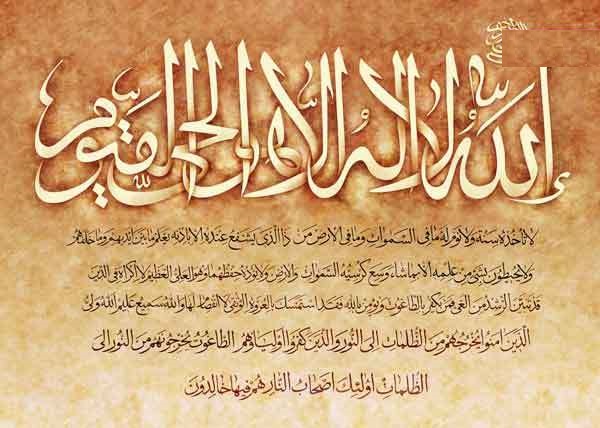 الله لا اله الا هو الحی القیوم
لا تأخذه سنة ولا نوم له ما فی السموات وما فی الارض من ذا الذی یشفع عنده الا باذنه یعلم ما بین ایدیهم وما خلفهم
ولا یحیطون بشئ من علمه الا بما شاء وسع کرسیه السموات والارض ولا یؤده حفظهما وهو العلی العظیم لا اکراه فی الدین
قد تبین الرشد من الغی فمن یکفر بالطاغوت ویؤمن بالله فقد استمسک بالعروة الوثقی لا انفصام لها والله سمیع علیم الله ولی
الذین امنوا یخرجهم من الظلمات الی النور والذین کفروا اولیاؤهم الطاغوت یخرجونهم من النور الی
الظلمات اولئک اصحاب النار هم فیها خالدون